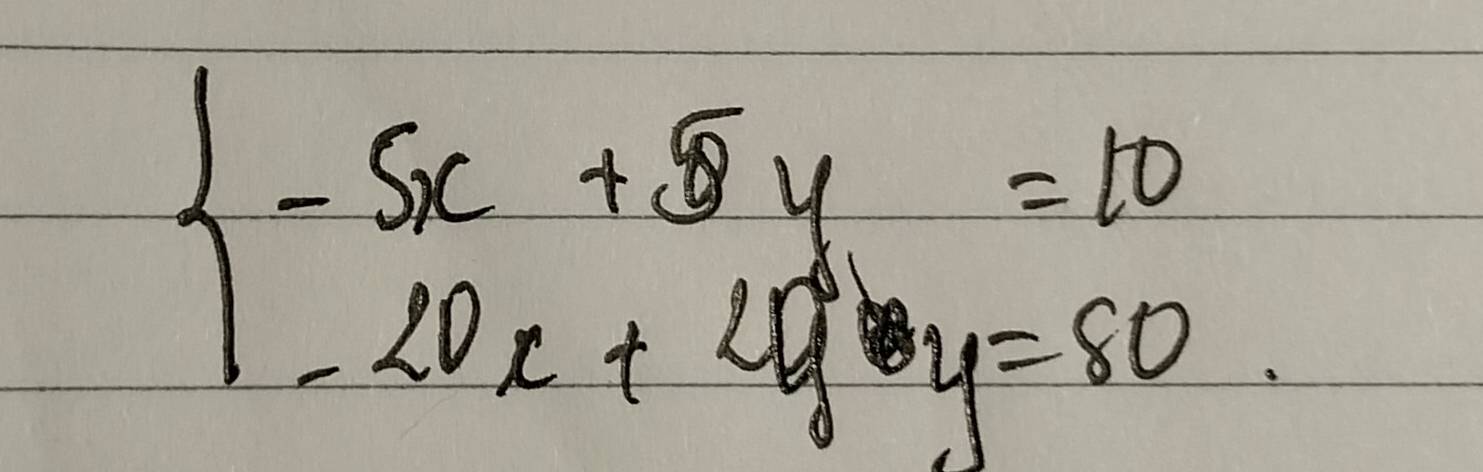 - 5x + 5y = 10
- 20x + 20y = 80.